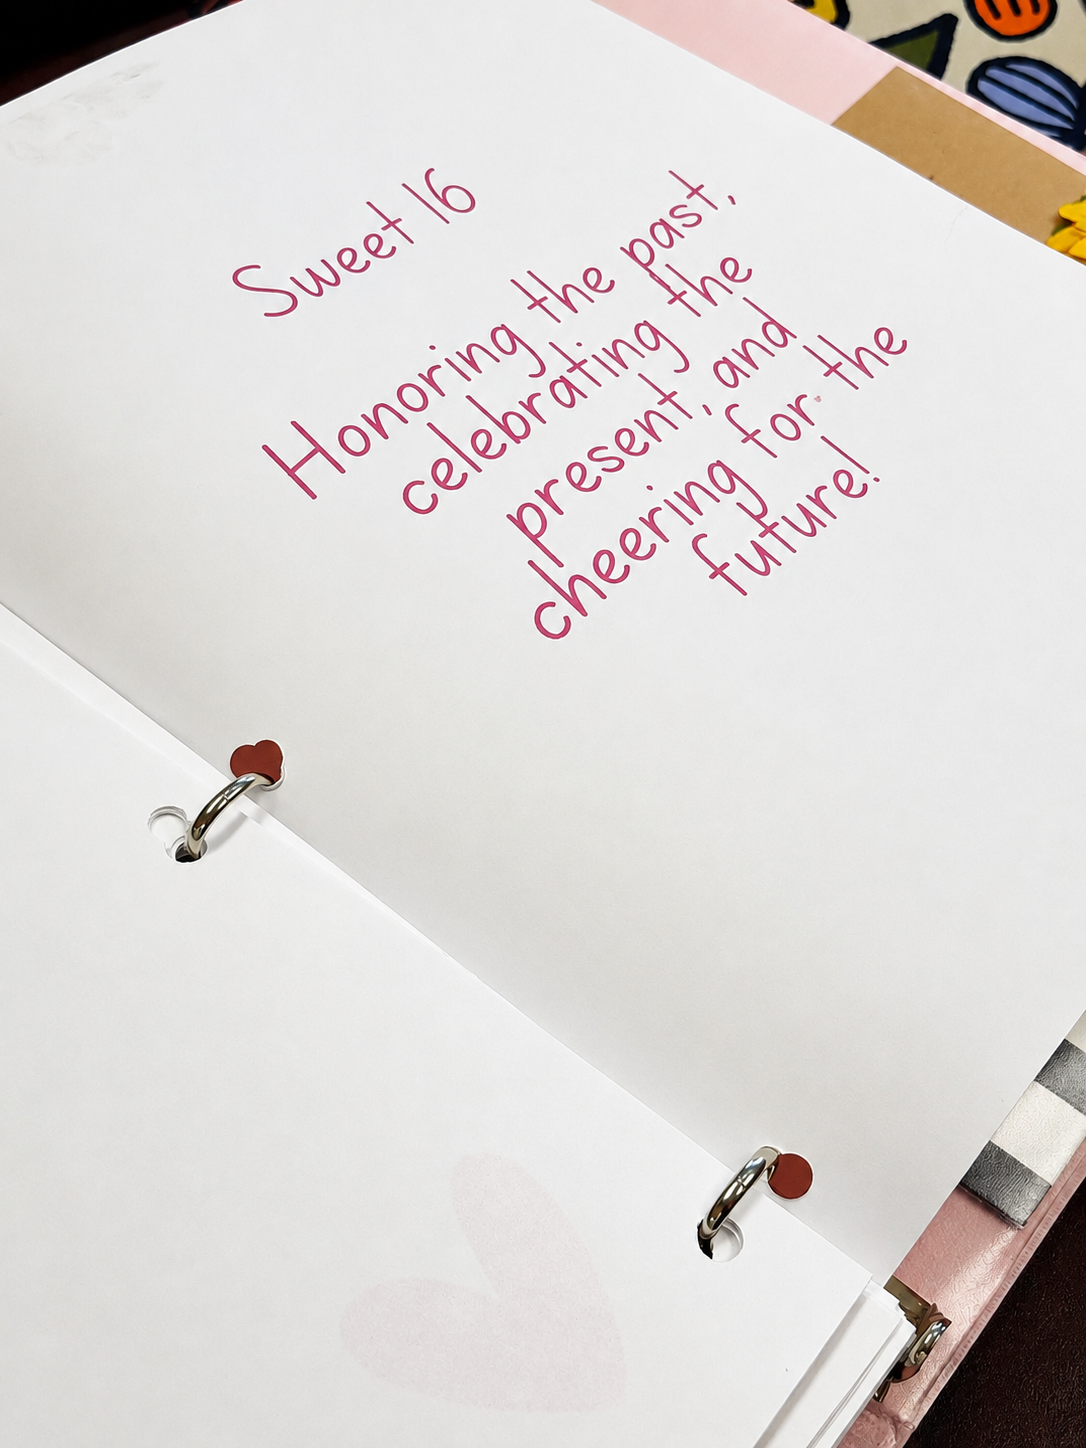 Sweet 16
Honoring the past,
celebrating the
present, and
cheering for the
future!